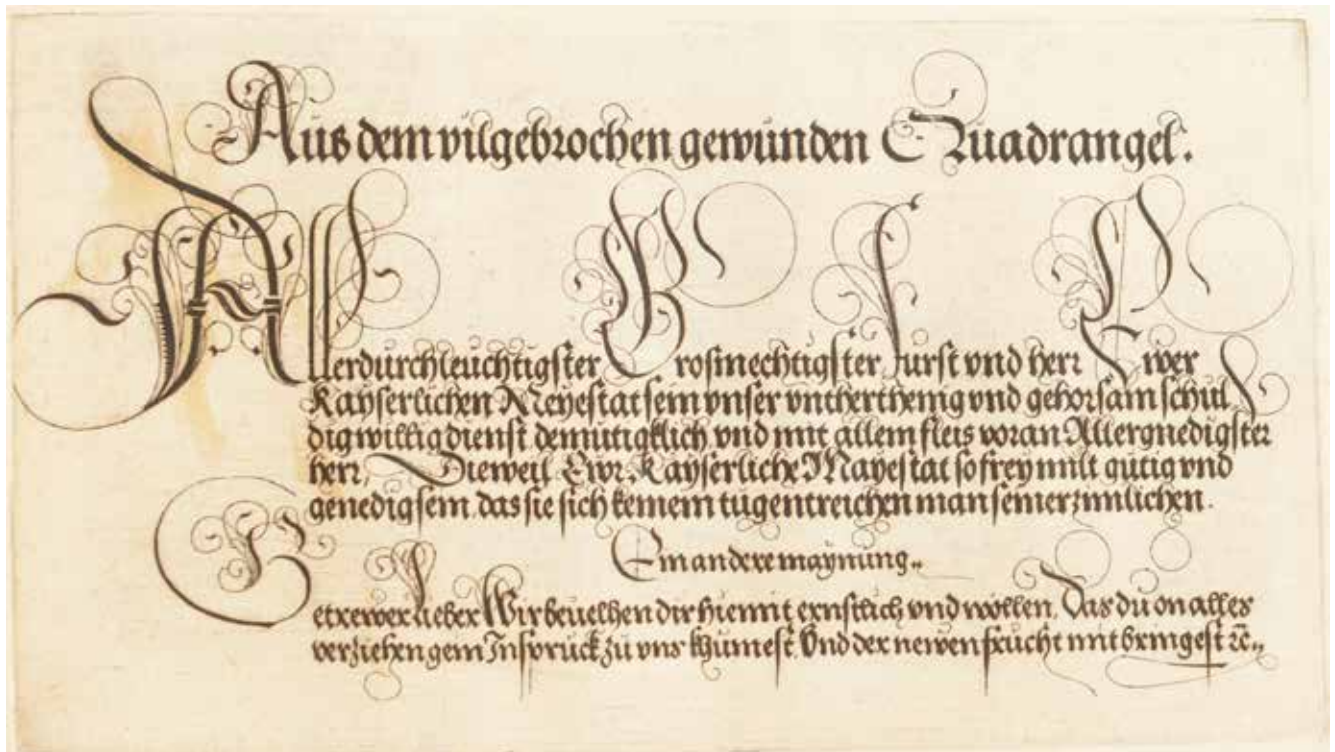 Aus dem vilgebrochen gewunden Quadrangel.
Allerdurchleuchtigster Grosmechtigster furst vnd herr Ewer
Kayserlichen Meyestat sein vnser vntherthenig vnd gehorsam schul
dig willig dienst demutigklich vnd mit allem fleis voran Allergnedigster
herr, Dieweil Ewr Kayserliche Mayestat so frey milt gutig vnd
genedig sein das sie sich keinem tugentreichen man seiner zimlichen.
Ein andere maynung.,
Getrewer Lieber Wir beuelhen dir hiemit ernstlich vnd wollen, Das du on alles
verziehen gem Inspruck zu vns khumest Vnd der newen frucht mit bringest ꝛc.,